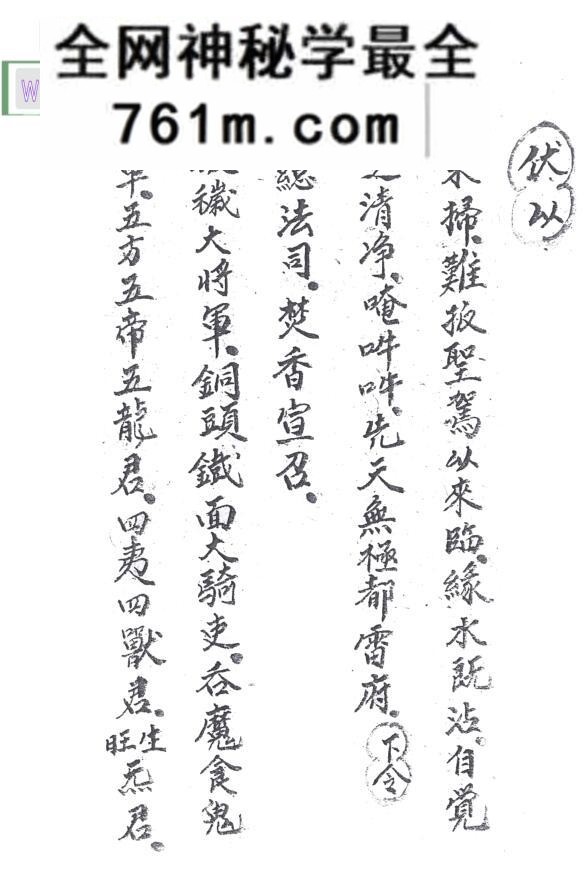 全网神秘学最全
761m.com
W
伏以
掃、難扳聖駕以來臨。緣水既沾。自覺
清净、唵吽吽、先天無極都雷府。下令
總法司。焚香宣召。
穢大将軍、銅頭鐵面大騎吏。吞魔食鬼
五方五帝五龍君。四夷四獸君。旺生炁君。